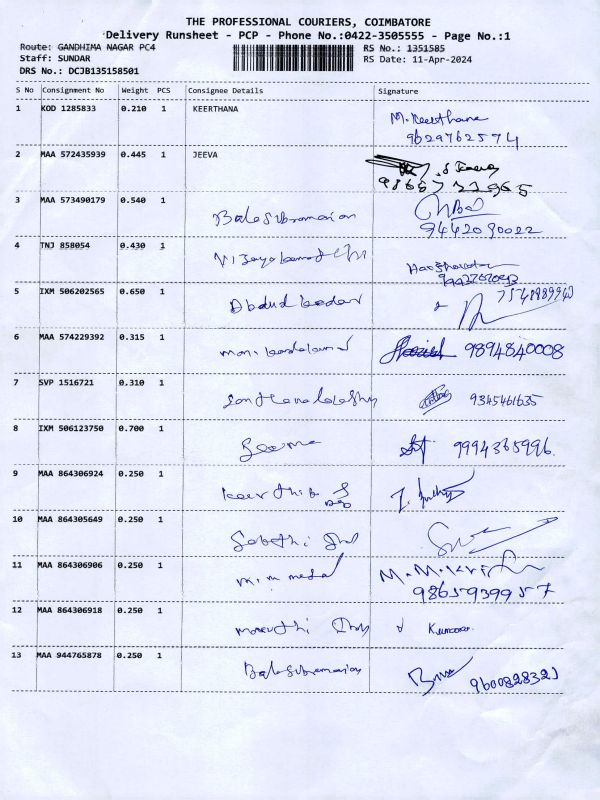 THE PROFESSIONAL COURIERS, COIMBATORE
Delivery Runsheet - PCP - Phone No.:0422-3505555 - Page No.:1
Route: GANDHIMA NAGAR PC4 RS No.: 1351585
Staff: SUNDAR RS Date: 11-Apr-2024
DRS No.: DCJB135158501
S No Consignment No Weight PCS Consignee Details Signature
1 KOD 1285833 0.210 1 KEERTHANA M. Keerthana
9629762574
2 MAA 572435939 0.445 1 JEEVA
3 MAA 573490179 0.540 1 Balasubramanian
9442090022
4 TNJ 858054 0.430 1
5 IXM 506202565 0.650 1
6 MAA 574229392 0.315 1 9894840008
7 SVP 1516721 0.310 1 9345461635
8 IXM 506123750 0.700 1 Seema 9994365996.
9 MAA 864306924 0.250 1
10 MAA 864305649 0.250 1
11 MAA 864306906 0.250 1
9865939957
12 MAA 864306918 0.250 1
13 MAA 944765878 0.250 1 Balasubramanian